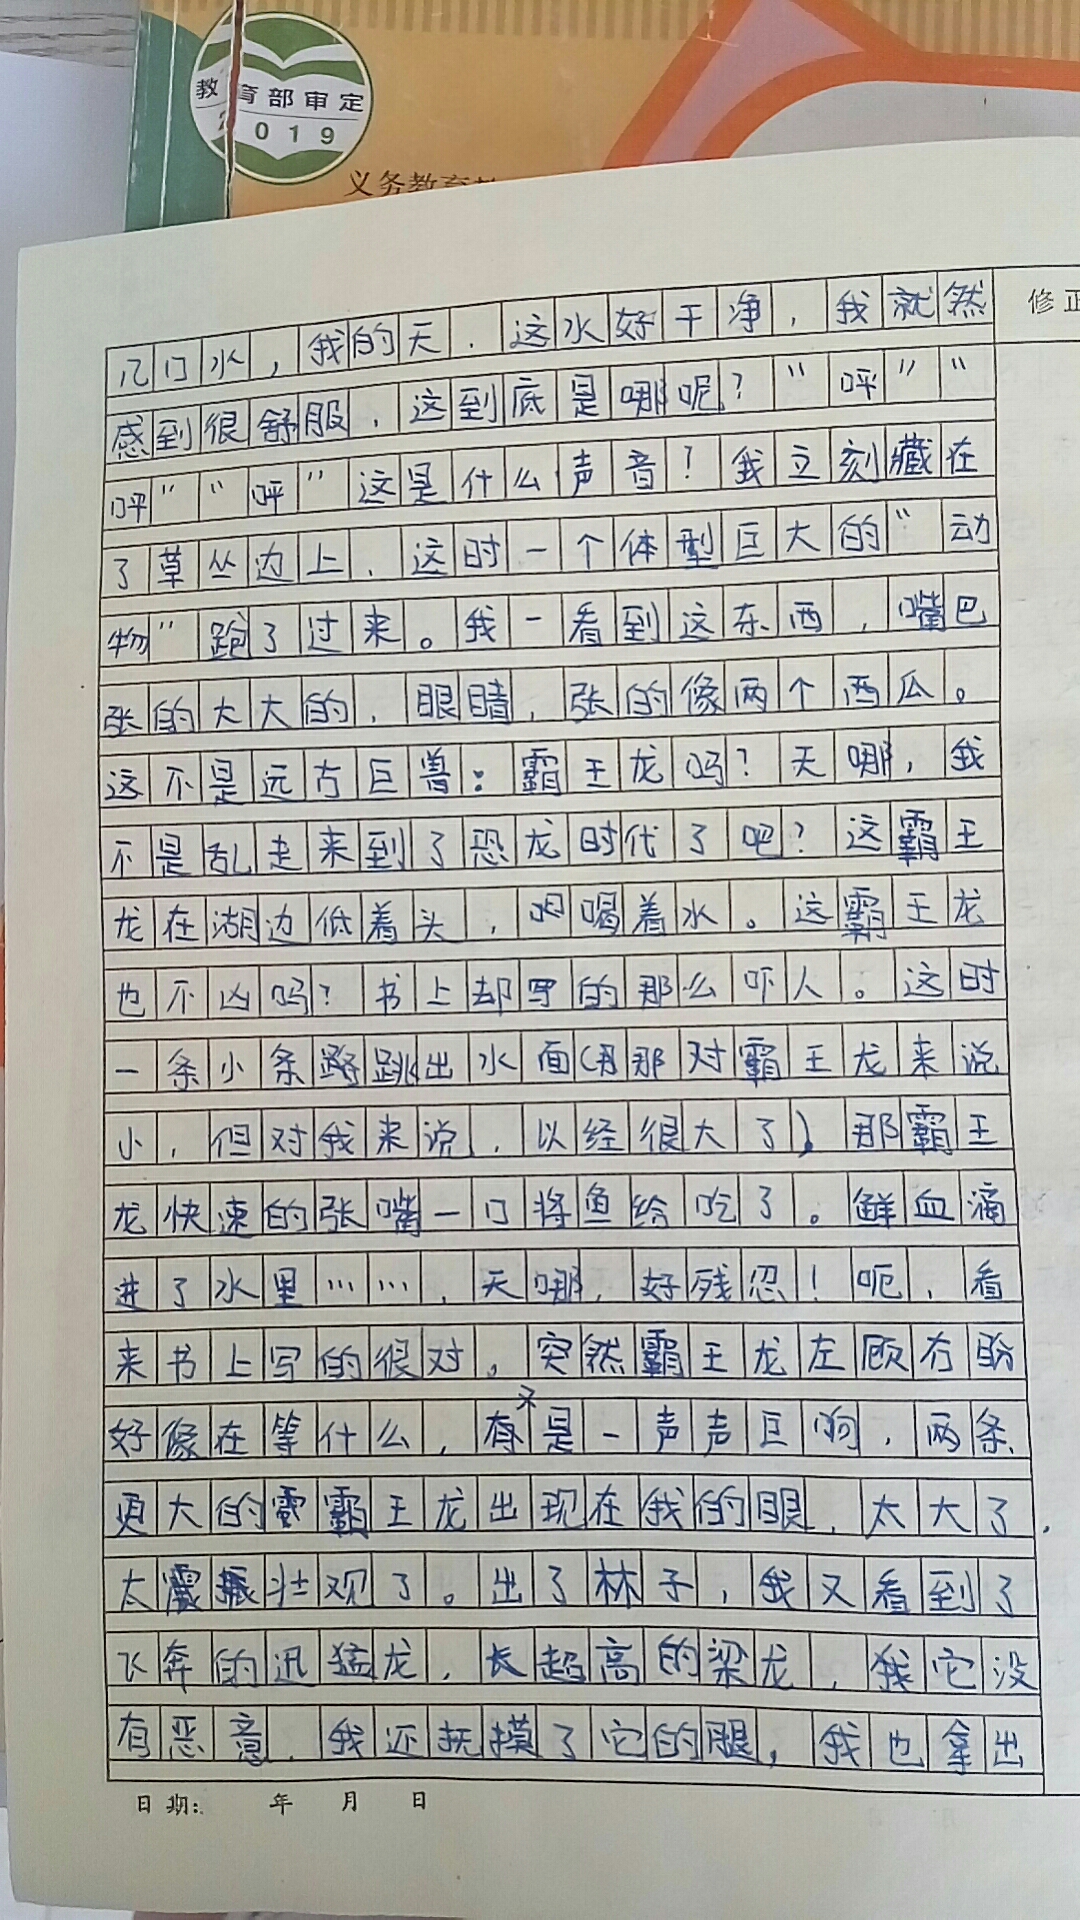 教育部审定
2019
义务教育
修正
几口水，我的天．这水好干净，我就然
感到很舒服．这到底是哪呢？“呼”“
呼”“呼”这是什么声音？我立刻藏在
了草丛边上．这时一个体型巨大的“动
物”跑了过来。我一看到这东西，嘴巴
张的大大的，眼睛，张的像两个西瓜。
这不是远古巨兽：霸王龙吗？天哪，我
不是乱走来到了恐龙时代了吧？这霸王
龙在湖边低着头，喝着水。这霸王龙
也不凶吗？书上却写的那么吓人。这时
一条小条跳出水面(那对霸王龙来说
小，但对我来说，以经很大了)那霸王
龙快速的张嘴一口将鱼给吃了。鲜血滴
进了水里……，天哪，好残忍！呃，看
来书上写的很对。突然霸王龙左顾右盼
好像在等什么，又是一声声巨响，两条
更大的霸王龙出现在我的眼，太大了，
太震撼壮观了。出了林子，我又看到了
飞奔的迅猛龙，长超高的梁龙，我它没
有恶意，我还抚摸了它的腿，我也拿出
日期： 年 月 日